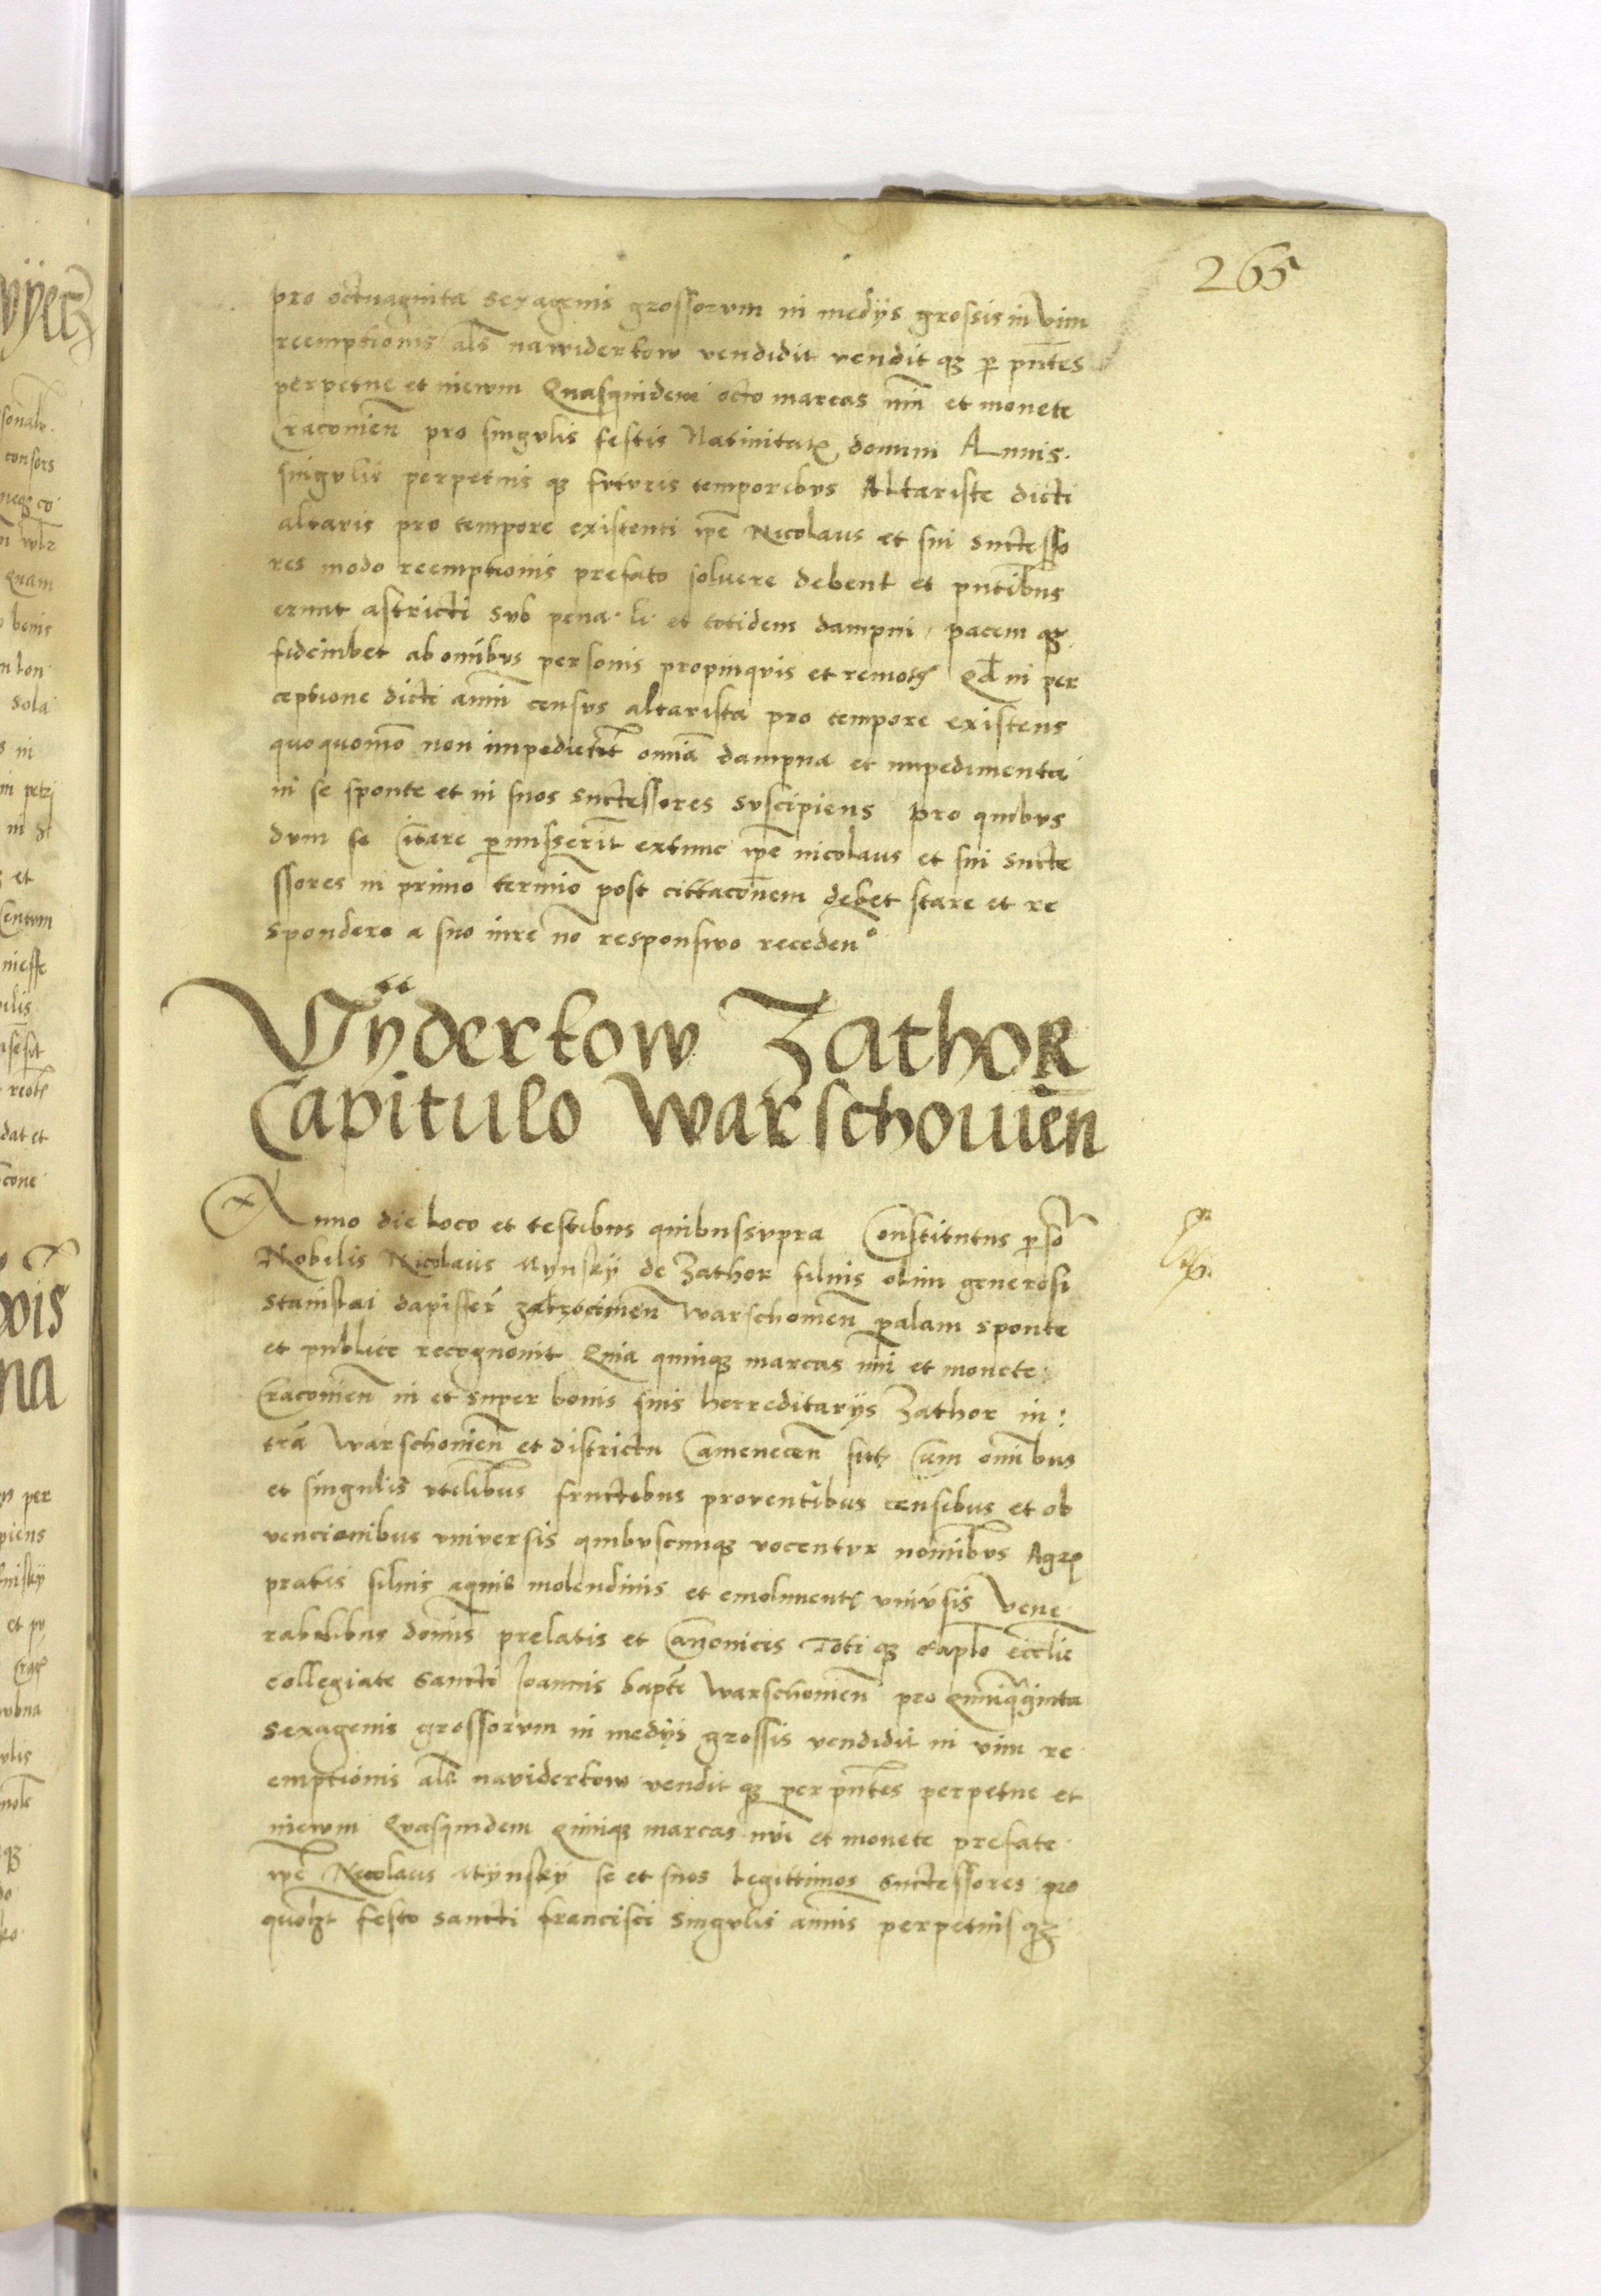 265
pro octuaginta sexagenis grossorum in medijs grossis in vim
reemptionis als̄ nawiderkow vendidit vendit qʒ per pn̄tes
perpetue et in ewm Quasquidem octo marcas nūi et monete
Cracouien̄ pro singulis festis Natiuitatꝭ domini Annis
singulis perpetuis qʒ futuris temporibus Altariste dicti
altaris pro tempore existenti ip̄e Nicolaus et sui successo
res modo reemptionis prefato soluere debent et pn̄tibus
erunt astricti sub pena et totidem dampni pacem qʒ
fideiubet ab om̄ibus personis propinquis et remotꝭ Qd̄ in per
ceptione dicti annui census altarista pro tempore existens
quoquomō non impedietr omnia dampna et impedimenta
in se sponte et in suos successores suscipiens pro quibus
dum se Citare permisserit extunc ip̄e nicolaus et sui succe
ssores in primo termīo post cittacōnem debet stare et re
spondere a suo iure nō responsiuo recedeñ
Vÿderkow Zathor
Capitulo warschouien̄
Anno die loco et testibus quibussupra Constitutus perso
Nobilis Nicolaus Mynsky de Zathor filius olim generosi
Stanislai dapiferi zakrocimen̄ warschouien̄ palam sponte
et publice recognouit Quia quinqʒ marcas nūi et monete
Cracouien̄ in et super bonis suis herreditarijs Zathor in :
tra warschouien̄ et districtu Camenecen̄ sitꝭ Cum om̄ibus
et singulis vtilibus fructibus prouentibus censibus et ob
vencionibus vniuersis quibuscunqʒ vocentur nom̄ibus Agrꝭ
pratis siluis aquis molendinis et emolumentꝭ vniu̓sis Vene
rabilibus dom̄is prelatis et Canonicis Toti qʒ caplo ecc̄lie
collegiate sancti Joannis bapte warschouien̄ pro quinq̄ginta
sexagenis grossorum in medijs grossis vendidit in vim re
emptionis als̄ naviderkow vendit qʒ per pn̄tes perpetue et
in ewm Quasquidem quinqʒ marcas nūi et monete prefate
ip̄e Nicolaus Mynsky se et suos legittimos successores pro
quolʒt festo sancti francisci singulis annis perpetuis qʒ